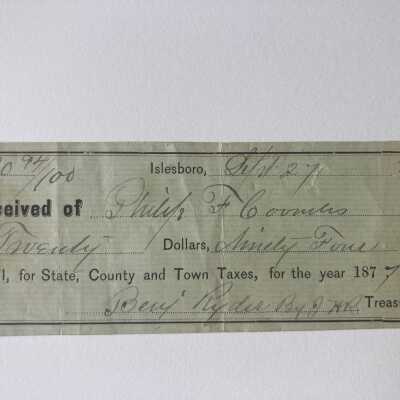 0 94/100 Islesboro, Sept 27
ceived of Philip F Coombs
Twenty Dollars, Ninety Four
l, for State, County and Town Taxes, for the year 1877
Benj Ryder By J Treas